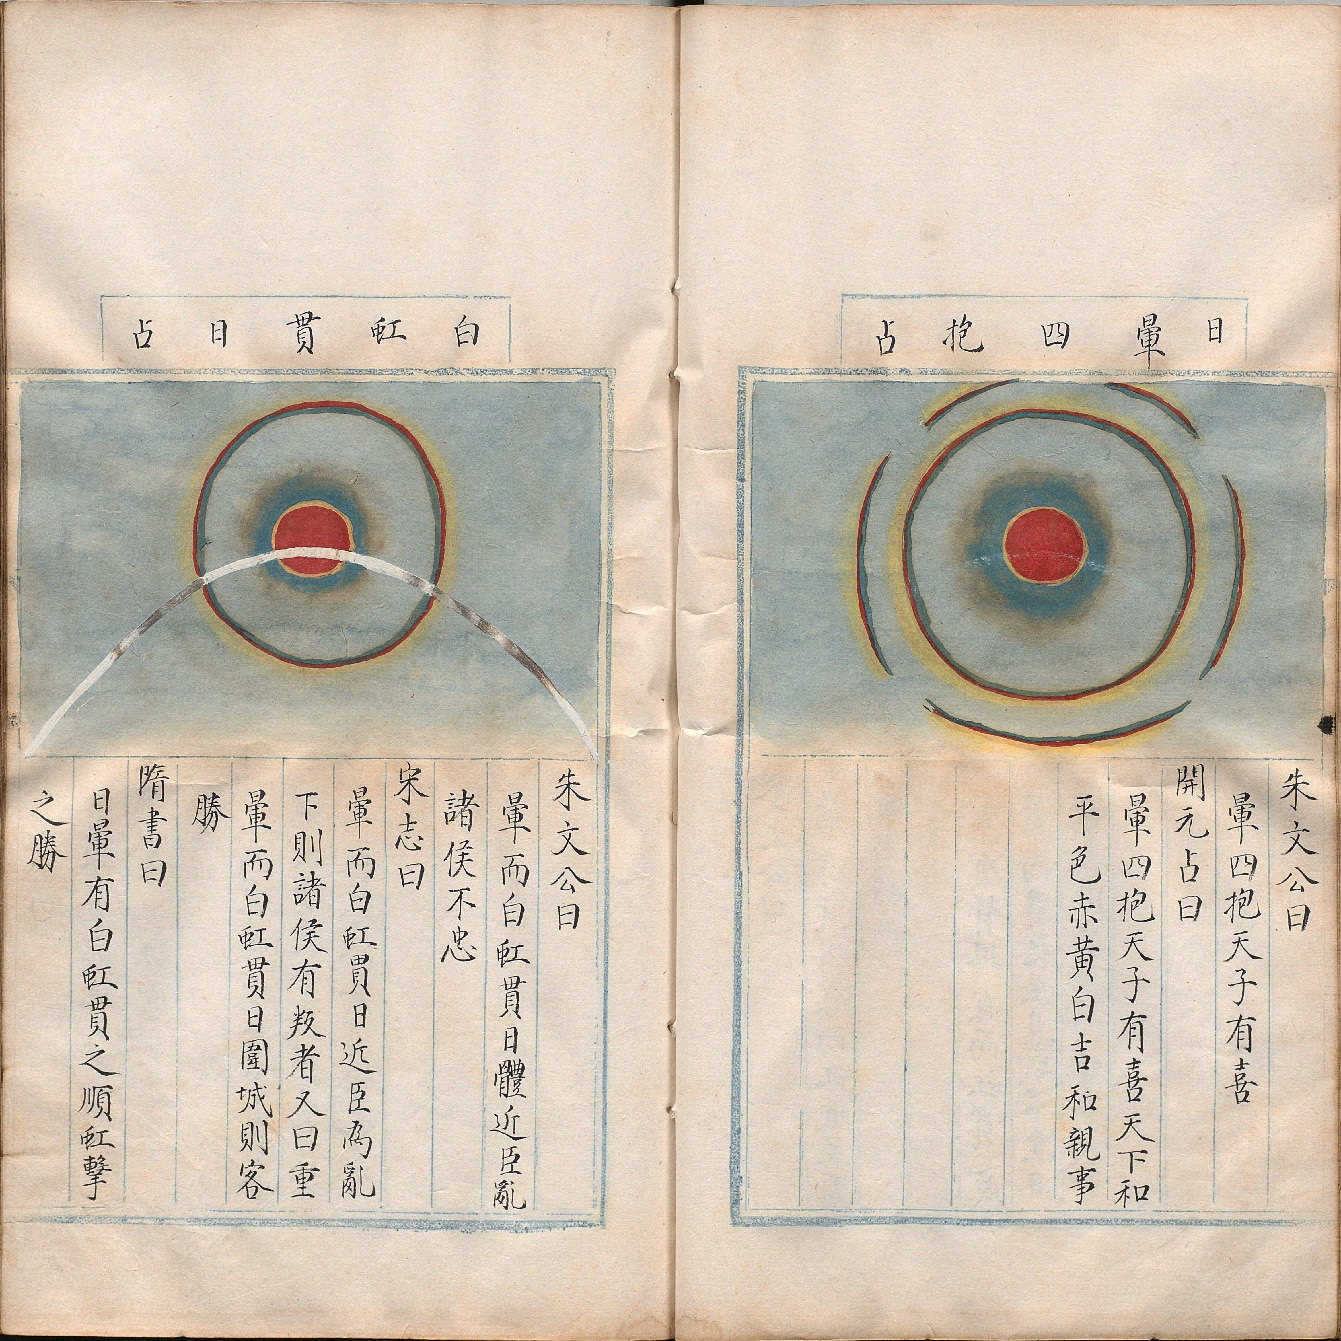 日暈四抱占
朱文公曰
暈四抱天子有喜
開元占曰
暈四抱天子有喜天下和
平色赤黃白吉和親事
白虹貫日占
朱文公曰
暈而白虹貫日體近臣亂
諸侯不忠
宋志曰
暈而白虹貫日近臣為亂
下則諸侯有叛者又曰重
暈而白虹貫日圍城則客
勝
隋書曰
日暈有白虹貫之順虹擊
之勝